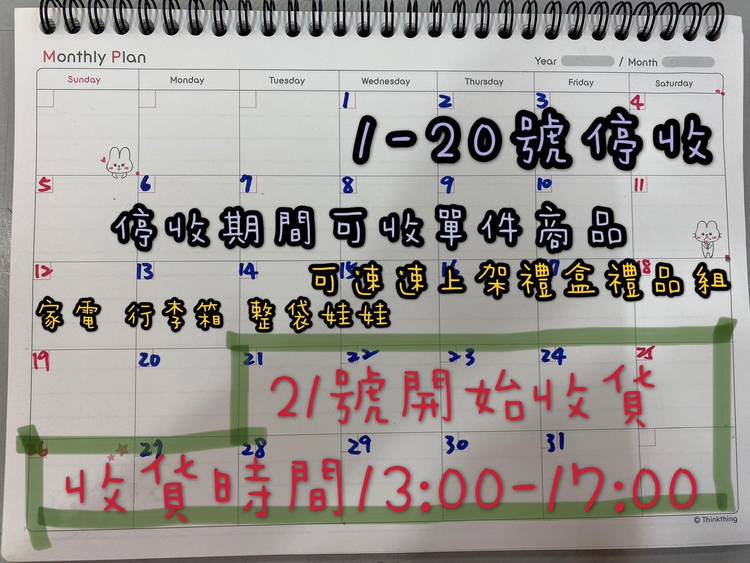 Monthly Plan
Year / Month
Sunday Monday Tuesday Wednesday Thursday Friday Saturday
1 2 3 4
1-20號停收
5 6 7 8 9 10 11
停收期間可收單件商品
12 13 14 15 18
可速速上架禮盒禮品組
家電 行李箱 整袋娃娃
19 20 21 22 23 24 25
21號開始收貨
26 27 28 29 30 31
收貨時間13:00-17:00
© Thinkthing